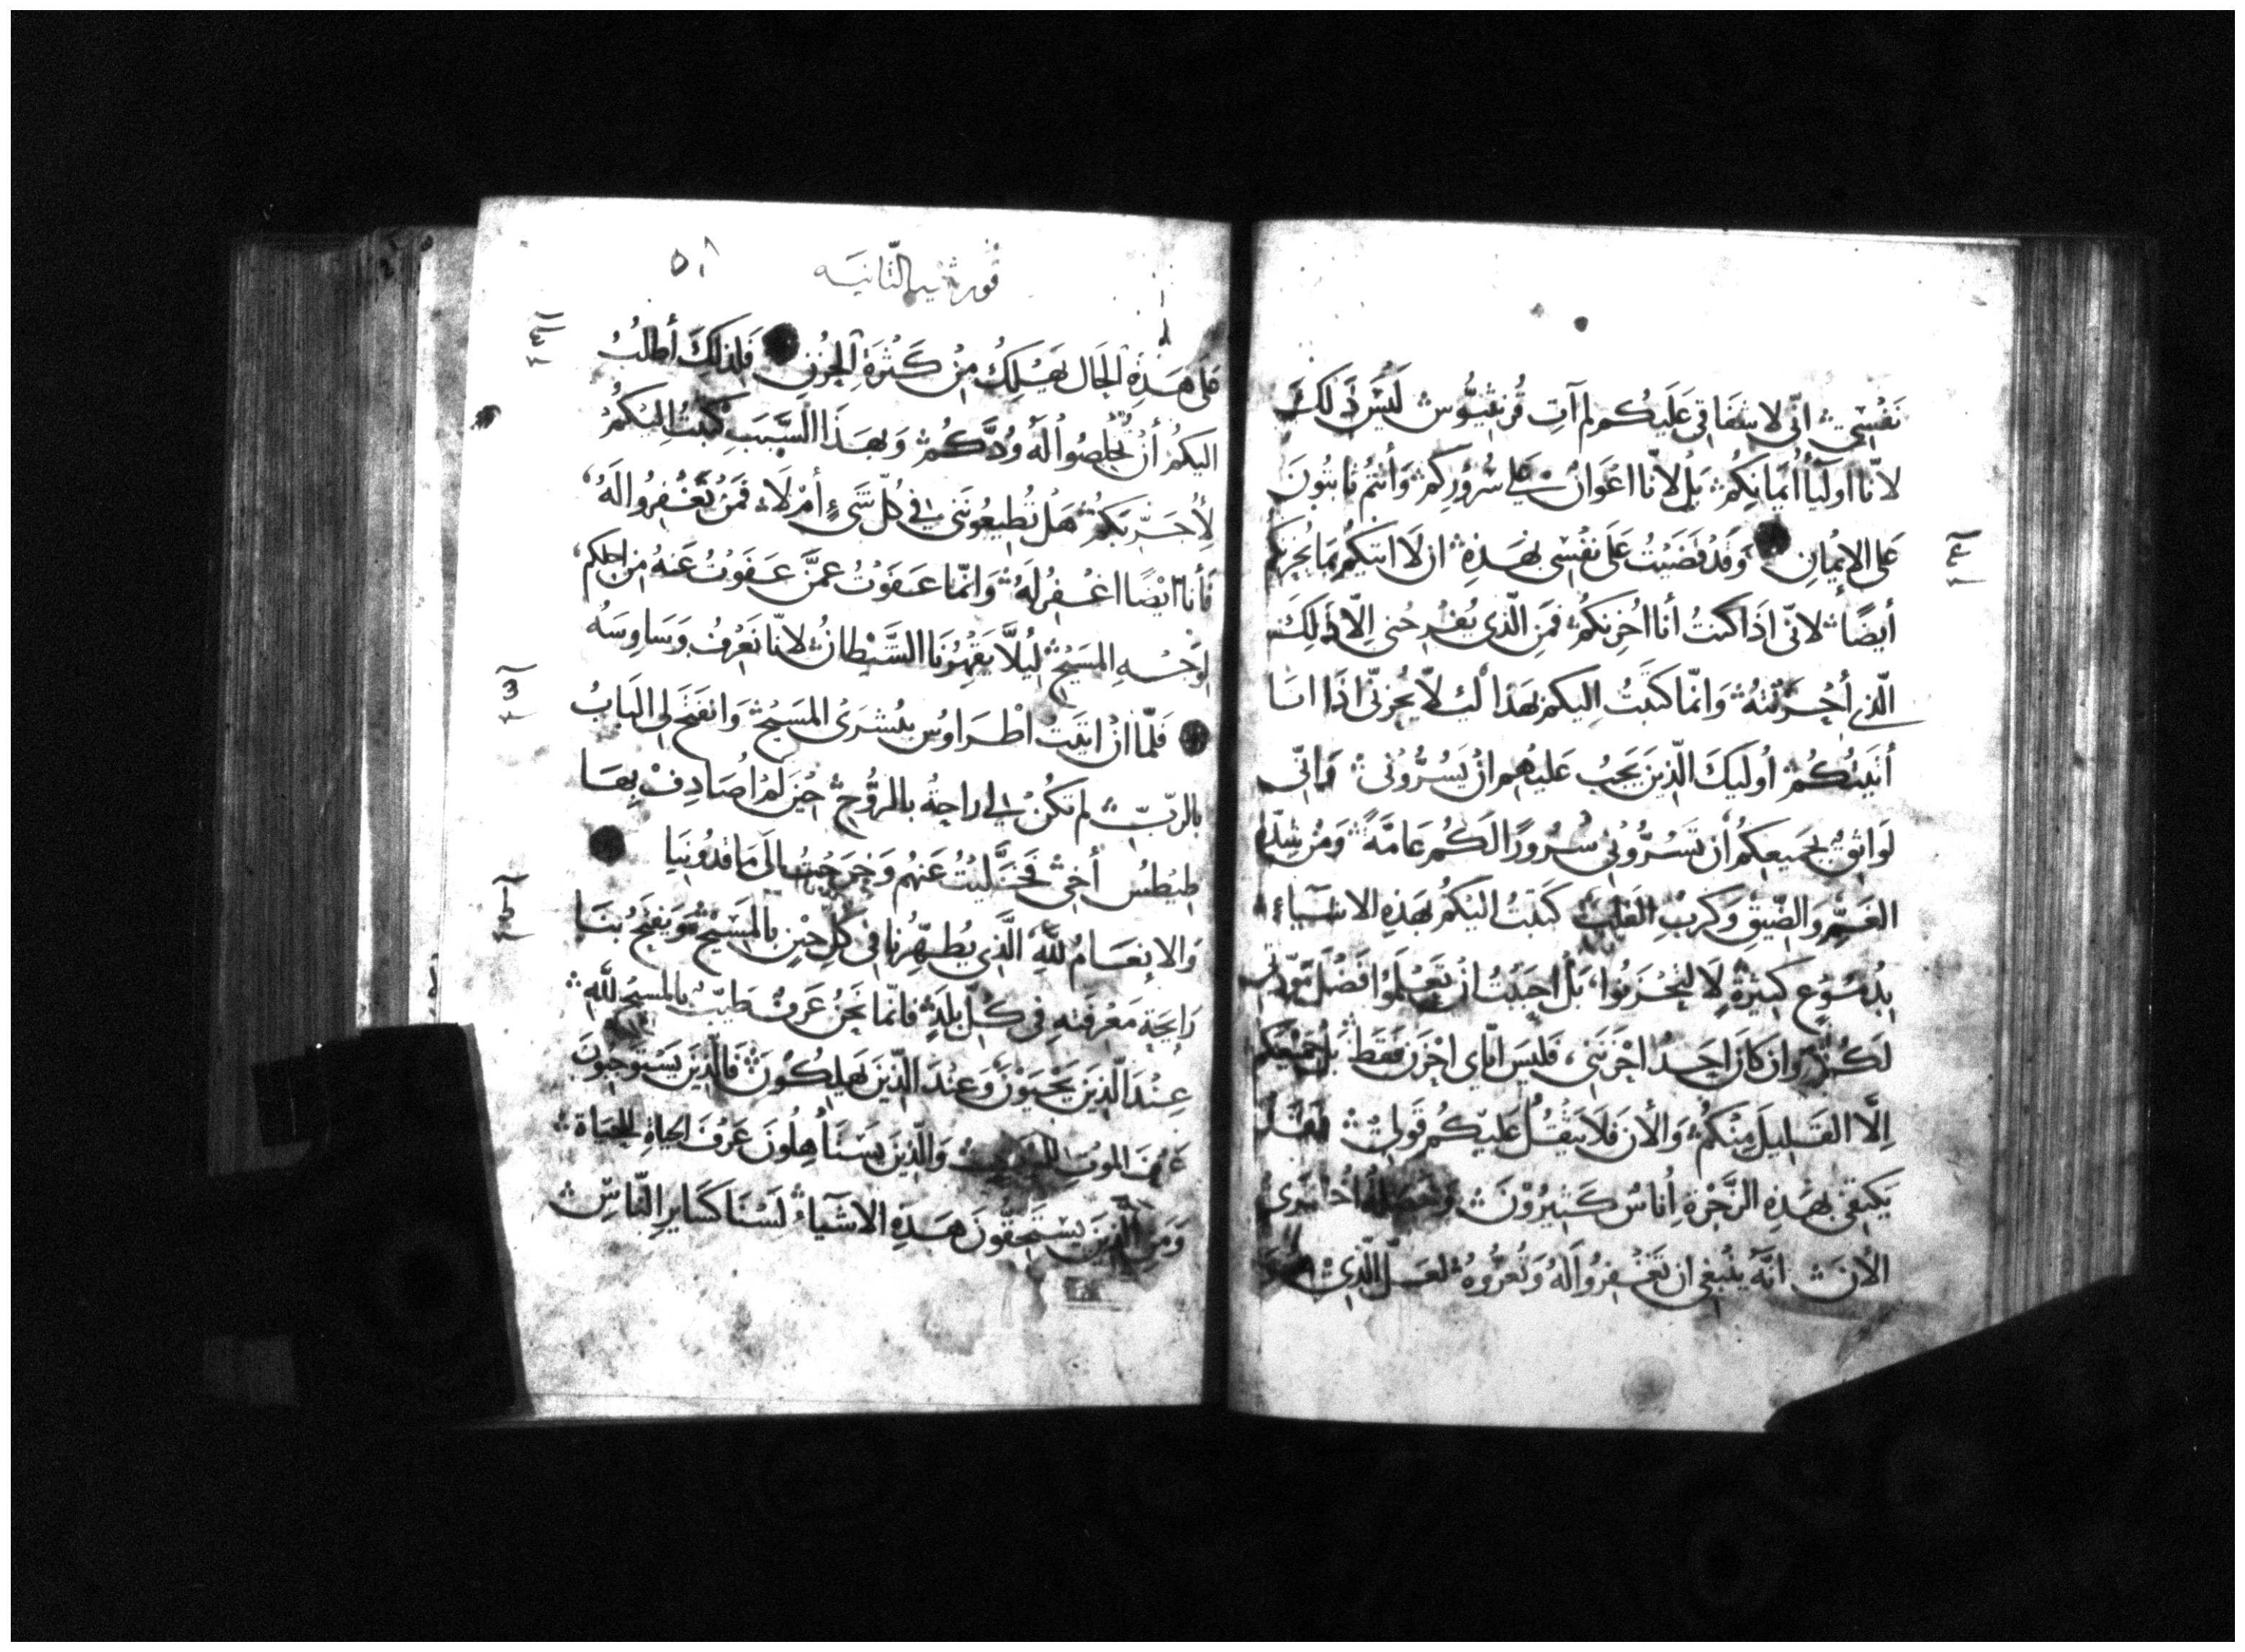 نَفْسِي اِنّي لاشفاقي عَلَيكُم لم آتِ قُرنثيُّوس لَيسَ ذَلكَ
لانّا اوليَاُ ايمَانِكُم بَل لانّا اعَوانٌ عَلى سُرُورِكم وَأنتم ثابتُونَ
عَلى الايْمانِ وَقَد قضَيْتُ عَلَى نفْسى بهَذِهِ ان لَا اتيكُم بمَا يحزنكم
أيضًا لانّى اذَا كنتُ أنا احُزنكُم فمَنِ الّذى يُفْرحُنى اِلّا ذَلِكَ
الّذى أحْزَنْتهُ وَانمّا كتَبتُ اِليكم بهَذا لكيلا يحُزنّى اذَا انَا
أتَيتُكُم أوليكَ الّذينَ يَجبُ عَليهم انْ يَسُرُّونى وَانّى
لَوَاثِقٌ بجَميعِكُم أن تَسُرُّونى سُرُورًا لَكُم عَامَّةً وَمنْ شِدّة
الغَمِّ وَالضّيقِ وَكَربِ القَلب كتَبْتُ اليَكُم بهَذِهِ الاشيآءِ
بدُمُوعٍ كثيرَةٍ لَا لتَحْزَنوُا بَل احبَبْتُ انْ تعْلَمُوا فَضْل مَودّتى
لَكُم وَان كانَ احَدٌ احْزَنَنى فَليسَ ايّاى احْزَن فقَط بل جميعَكم
اِلّا القَليلَ مِنكُم وَالأنَ فَلَا يثقُلُ عَليكُم قَولى فقَد
يَكتفى بهَذِهِ الزَّجْرةِ اُناسٌ كَثِيرُوْنَ
الأنَ انّهُ ينُبغى ان تَغْفِرُوا لَهُ وَتُعزُّوهُ لعَلّ الّذى
قورنثيه الثانيه
عَلى هَذِهِ الحَال يَهْلِكُ مِنْ كَثْرَةِ الحُزنِ فَلِذلِكَ أطلبُ
اليكُم أنْ تُخْلِصُوا لَهُ وُدَّكُم وَبهَذَا السَّبَبِ كتبْتُ اليَكُمُ
لِأُجَرِّبَكُم هَل تُطيعُونَنى في كُلّ شَىءٍ أمْ لَا فَمَنْ تَغْفِرُوا لَهُ
فأنا ايْضًا اغْفِرُ لَهُ وَانمّا عَفَوْتُ عَمَّن عَفَوْتُ عَنهُ مِن اجلكم
لوَجْهِ المَسِيْحِ لِيْلَّا يَقهَرُنا الشَّيْطانُ لانّا نَعْرفُ وَسَاوِسَهُ
فَلّمَا انْ اتيتُ اطْرَاوُس ببُشرَىْ المَسيْح وَانفتَحَ لى البَابُ
بالربّ لم تكُنْ لى راحةٌ بالرُّوحِ حيْنَ لَمْ اُصَادِفْ بِهَا
طِيْطسُ أخى فَتَخَلَّيْتُ عَنهُم وَخرَجْتُ الَى مَاقدُونيَا
وَالانعَامُ للّهِ الَّذِى يُطهِّرُنا فى كلّ حيْنٍ بالمَسيْحِ وَيَفتَحُ بنَا
رَايحَة مَعْرفَتهِ فى كُلّ بلَدٍ فانمّا نحْنُ عَرفٌ طَيّبٌ بالمسيح للّهِ
عِنْدَ الّذِينَ يَحْيَوْنَ وَعِنْدَ الّذِينَ يَهلِكُونَ فَالّذِينَ يَسْتَوجِبُونَ
عَرْفَ المَوتِ وَالّذِينَ يَسْتَأهِلُونَ عَرْفَ الحيَاةِ للحَيَاةِ
وَمَن الّذِينَ يسْتَحِقُّونَ هَذِهِ الاشْيَآءُ لَسْنَا كَسَايرِ النّاسِ